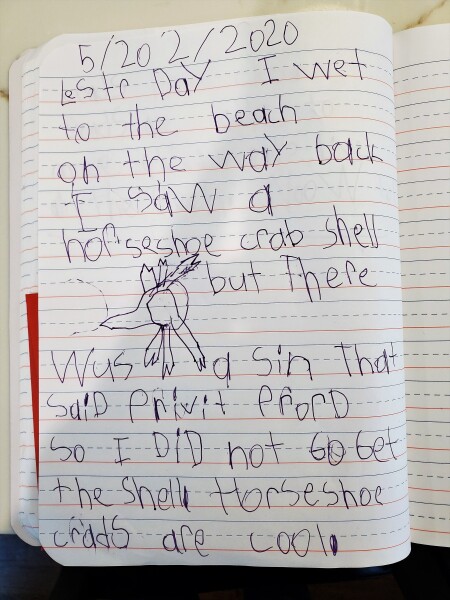 5/202/2020
Lestr Day I wet
to the beach
on the way back
I saw a
horseshoe crab shell
but There
Wus a Sin That
SaiD Privit ProPD
So I DiD not Go Get
the Shell Horseshoe
crads are cool